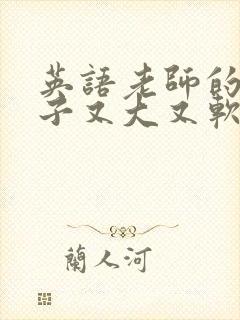 英語老師的
子又大又軟
蘭人河